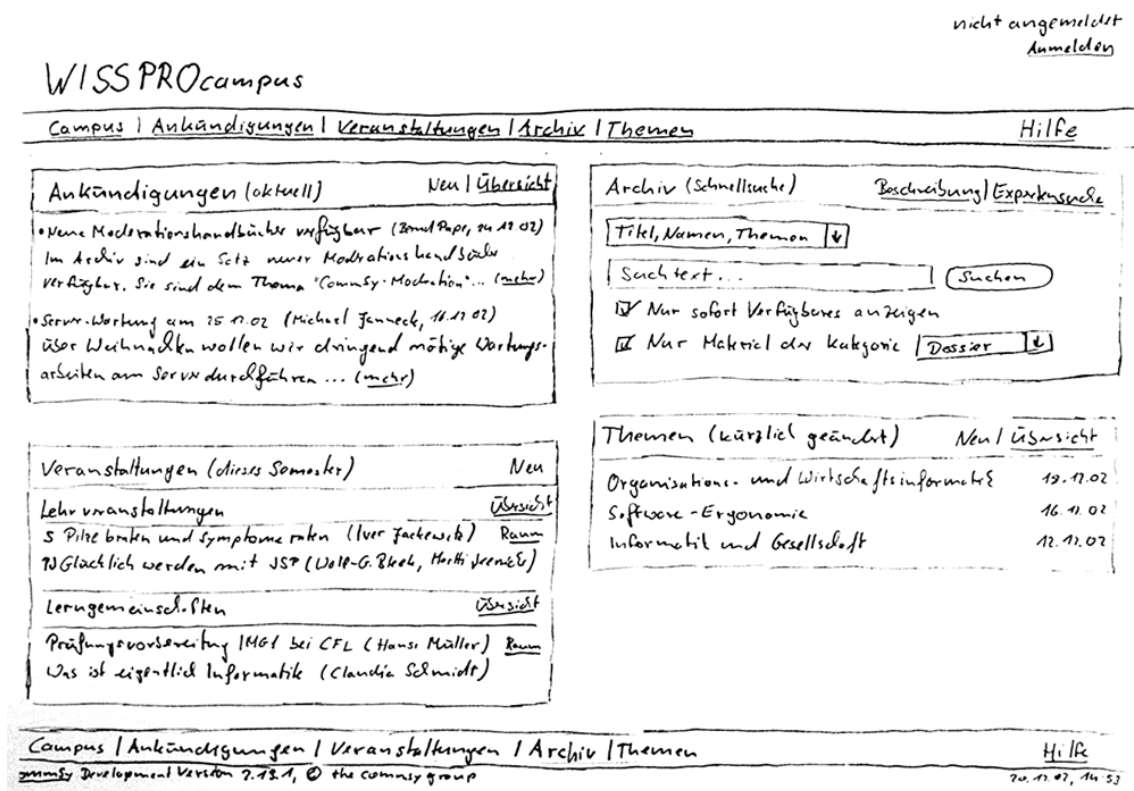 nicht angemeldet
Anmelden
WISSPROcampus
Campus | Ankündigungen | Veranstaltungen | Archiv | Themen Hilfe
Ankündigungen (aktuell) Neu | Übersicht
• Neue Moderationshandbücher verfügbar (Bernd Pape, 12.02)
Im Archiv sind ein Satz neuer Moderationshandbücher
verfügbar. Sie sind dem Thema "CommSy-Moderation"... (mehr)
• Server-Wartung am 25.12.02 (Michael Janneck, 16.12.02)
Über Weihnachten wollen wir dringend nötige Wartungs-
arbeiten am Server durchführen ... (mehr)
Veranstaltungen (dieses Semester) Neu
Lehrveranstaltungen Übersicht
5 Pilze braten und Symptome raten (Iver Jackewitz) Raum
Glücklich werden mit JSP (Wolf-G. Bleek,
Lerngemeinschaften Übersicht
Prüfungsvorbereitung IMG1 bei CFL (Hansi Müller) Raum
Was ist eigentlich Informatik (Claudia Schmidt)
Archiv (Schnellsuche) Beschreibung | Expertensuche
Titel, Namen, Themen
Suchtext... Suchen
Nur sofort Verfügbares anzeigen
Nur Material der Kategorie Dossier
Themen (kürzlich geändert) Neu | Übersicht
Organisations- und Wirtschaftsinformatik 19.12.02
Software-Ergonomie 16.12.02
Informatik und Gesellschaft 12.12.02
Campus | Ankündigungen | Veranstaltungen | Archiv | Themen Hilfe
CommSy Development Version 2.13.1, © the commsy group 20.12.02, 14:53